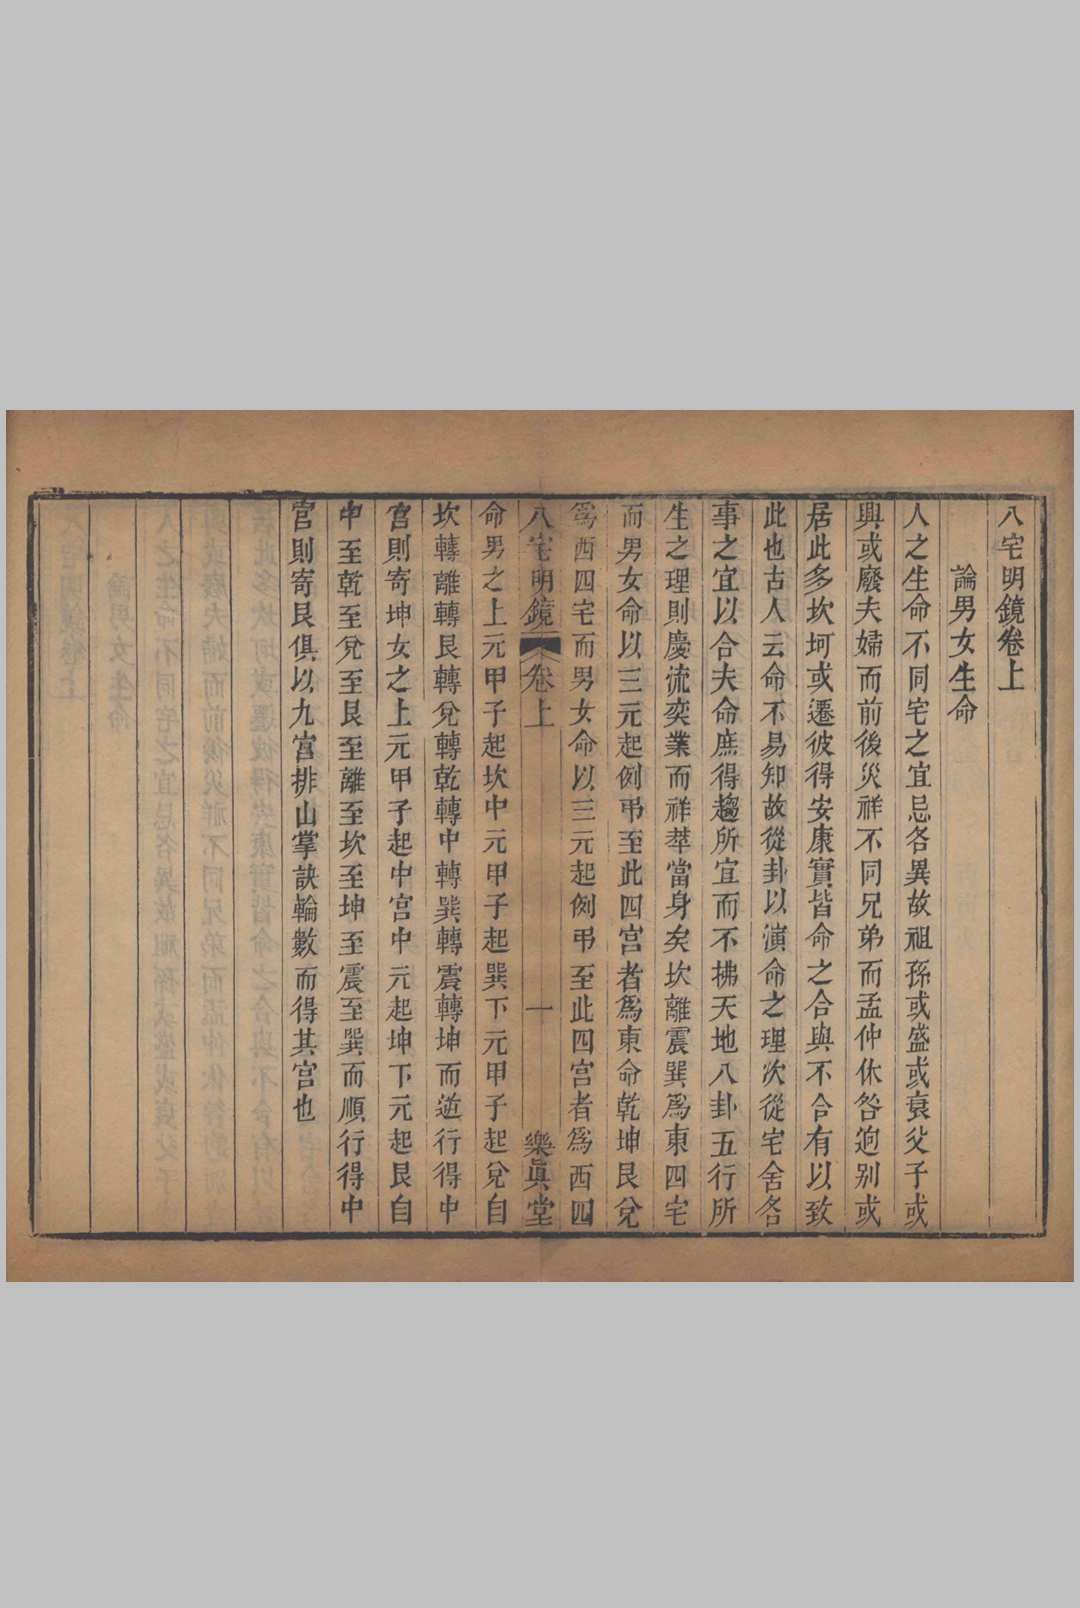 八宅明鏡卷上
論男女生命
人之生命不同宅之宜忌各異故祖孫或盛或衰父子或
興或廢夫婦而前後災祥不同兄弟而孟仲休咎逈别或
居此多坎坷或遷彼得安康實皆命之合與不合有以致
此也古人云命不易知故從卦以演命之理次從宅舍各
事之宜以合夫命庶得趨所宜而不拂天地八卦五行所
生之理則慶流奕業而祥萃當身矣坎離震巽爲東四宅
而男女命以三元起例弔至此四宮者爲東命乾坤艮兌
爲西四宅而男女命以三元起例弔至此四宮者爲西四
八宅明鏡 卷上 一 樂眞堂
命男之上元甲子起坎中元甲子起巽下元甲子起兌自
坎轉離轉艮轉兌轉乾轉中轉巽轉震轉坤而逆行得中
宮則寄坤女之上元甲子起中宮中元起坤下元起艮自
中至乾至兌至艮至離至坎至坤至震至巽而順行得中
宮則寄艮俱以九宮排山掌訣輪數而得其宮也